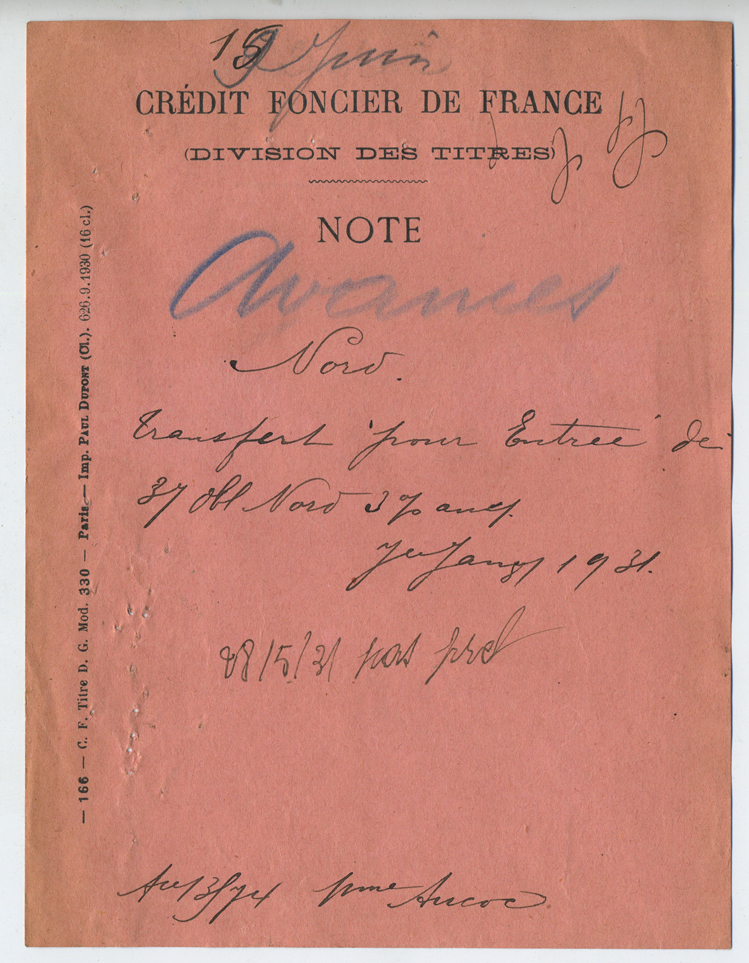 15 Juin
CRÉDIT FONCIER DE FRANCE
(DIVISION DES TITRES)
NOTE
Avances
Nord.
transfert pour Entrée de
37 Obl Nord 3 % anc.
Jce Janv 1931.
28/5/31 pas pret
Mme Aucoc
— 166 — C. F. Titre D. G. Mod. 330 — Paris. — Imp. PAUL DUPONT (Cl.). 626.9.1930 (16 cl.)